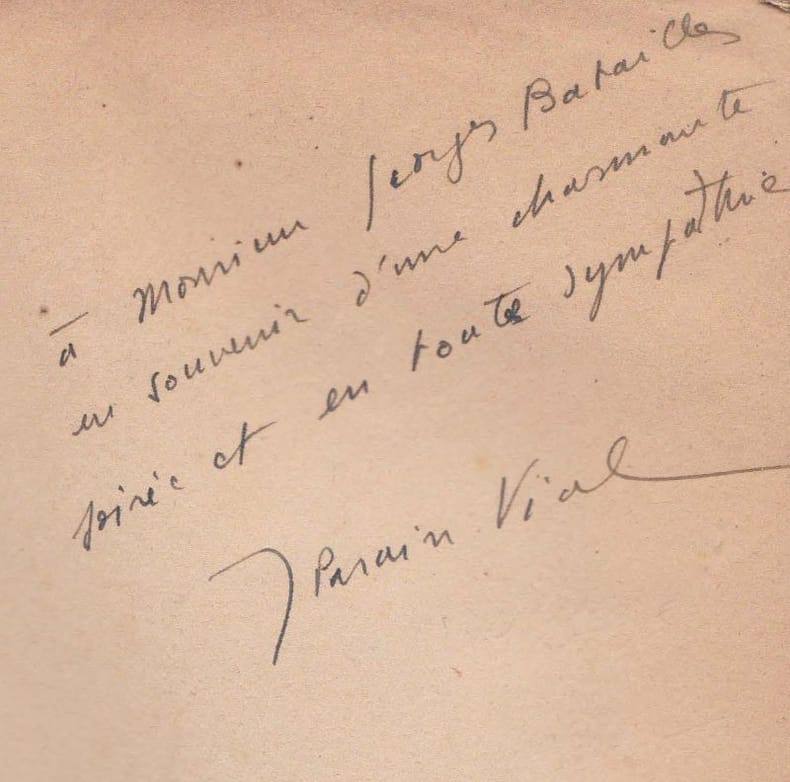 à Monsieur Georges Batailles
en souvenir d'une charmante
soirée et en toute sympathie
J Parain Vial